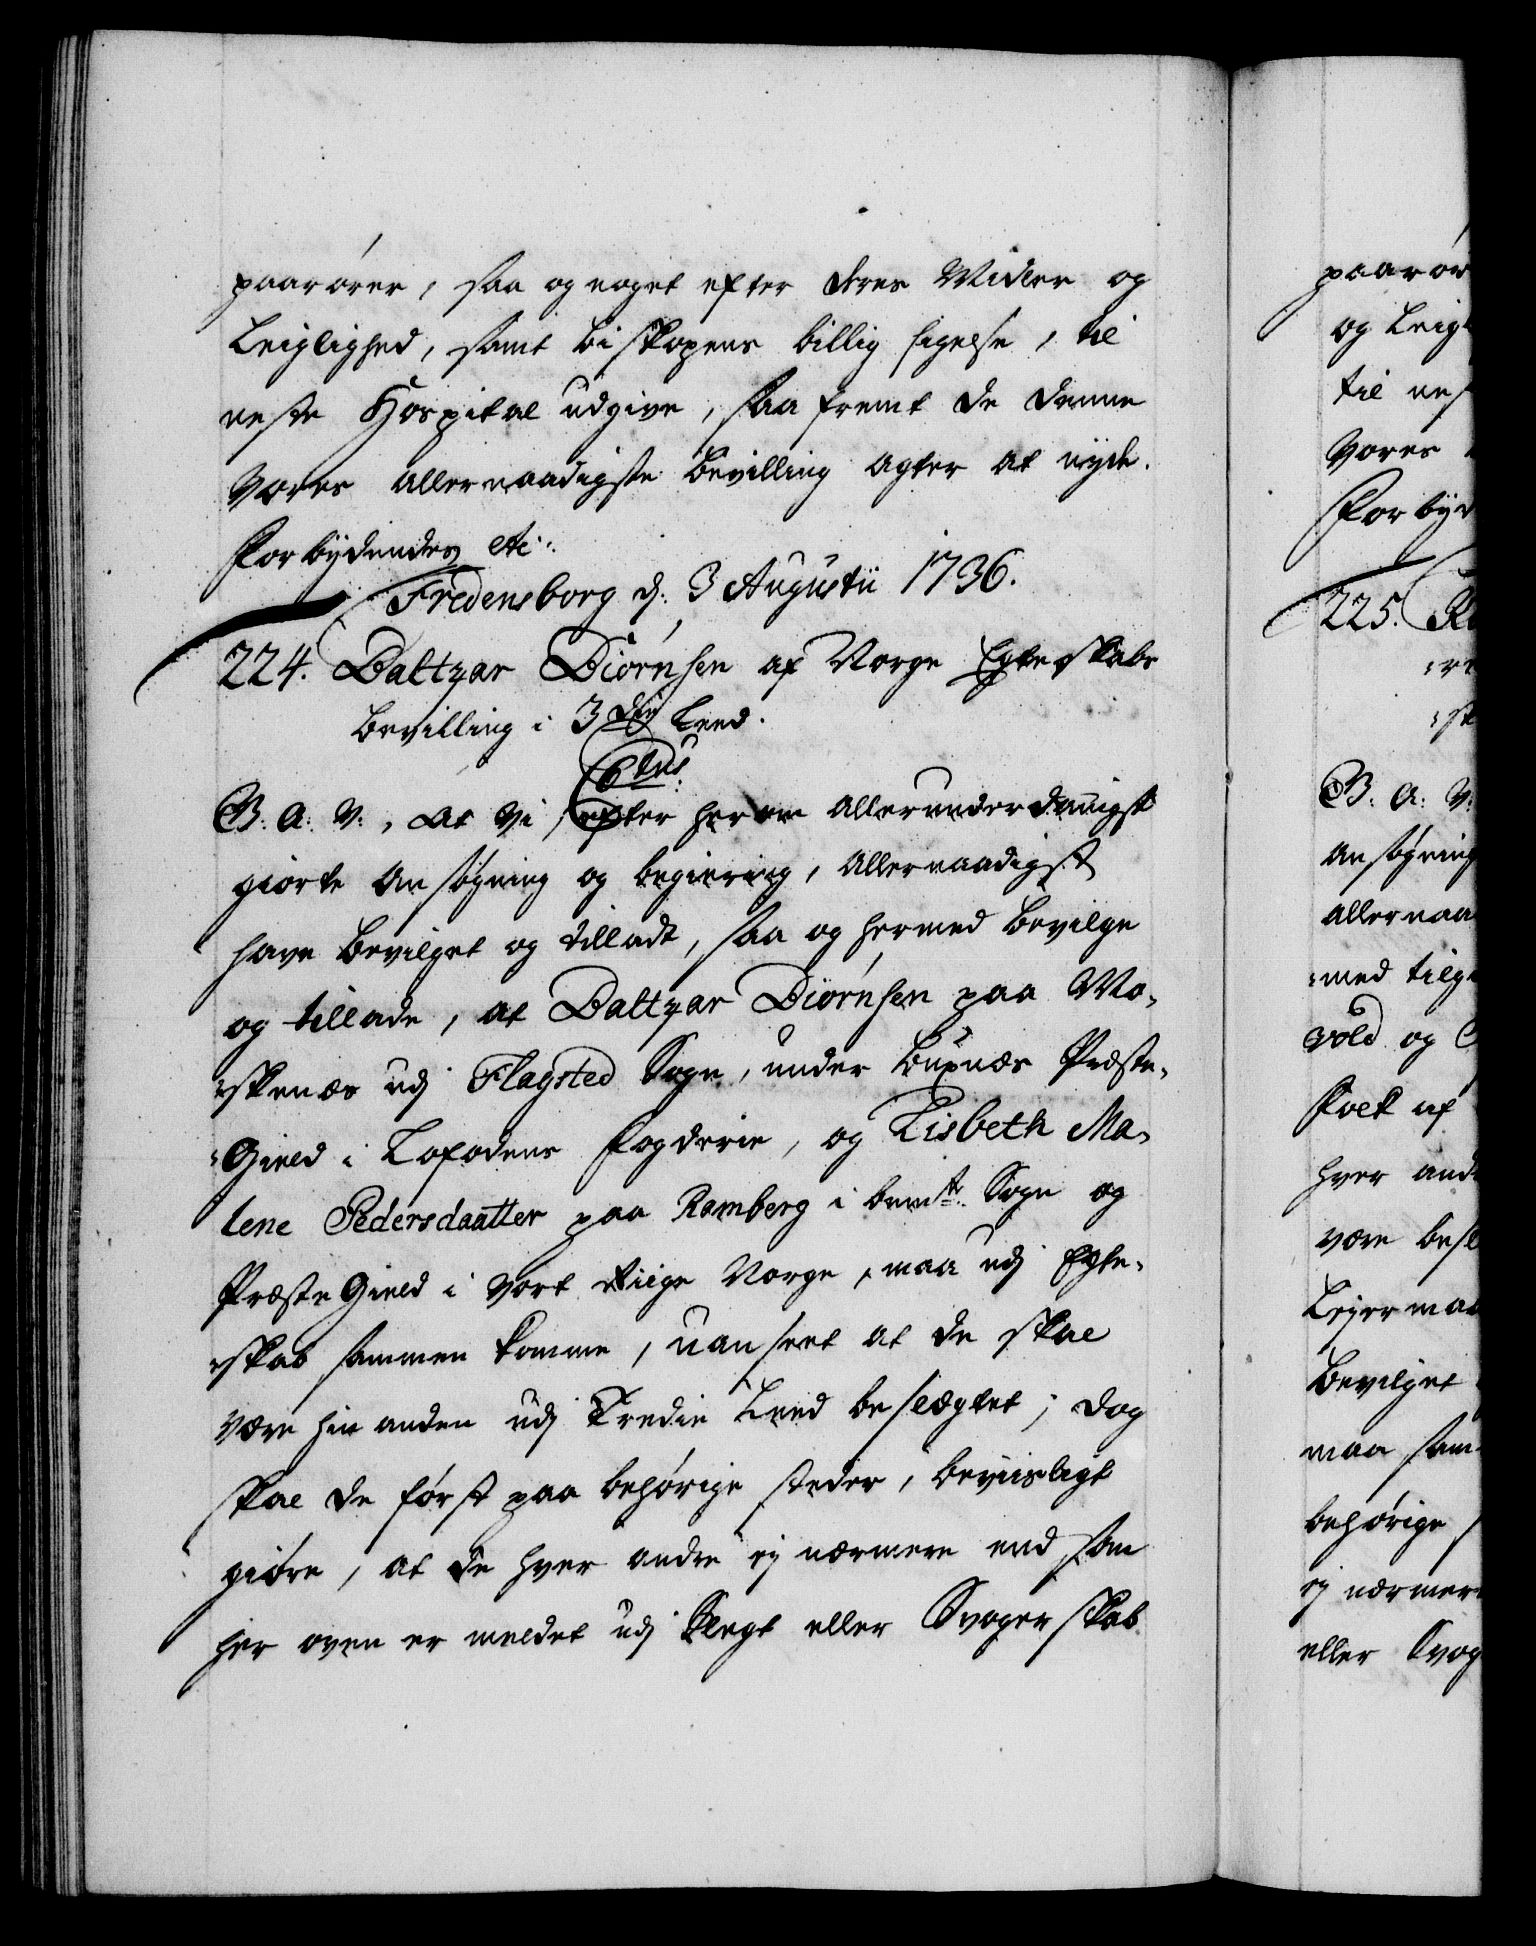 paarører, saa og noget efter deres Midler og
Leiglighed, samt biskopens billig sigelse, til
neste Hospital udgive, saa fremt de denne
Vores allernaadigste bevilling agter at nyde.
Forbydendes etc:
Fredensborg d: 3 Augustii 1736.
224. Baltzar Biørnsen af Norge Egteskabs
bevilling i 3die Leed.
Ctus
G. A. V:, at Vi, efter herom allerunderdanigst
giorte ansøgning og begiering, allernaadigst
have bevilget og tilladt, saa og hermed bevilge
og tillade, at Baltzar Biørnsen paa Mo-
skenæs udj Flagsted Sogn, under Buxnæs Præste-
Gield i Lofodens Fogderie, og Lisbeth Ma-
lene Pedersdaatter paa Ramberg i bemte Sogn og
Præste Gield i Vort Riige Norge, maa udj Egte-
skab sammen komme, uanseet at de skal
være hin anden udj Tredie Leed beslægtet; dog
skal de først paa behørige steder, beviisligt
giøre, at de hver andre ej nærmere end som
her oven er meldet udj Slegt eller Svogerskab
paarør
og Leigl
til nes
Vores
Forbyd
225.
G: A: V:
ansøgning
allernaa
med tilg
vold og
Folk af
hver and
være besl
Leyermaa
bevilget
maa sam
behørige
ej nærmer
eller Svog